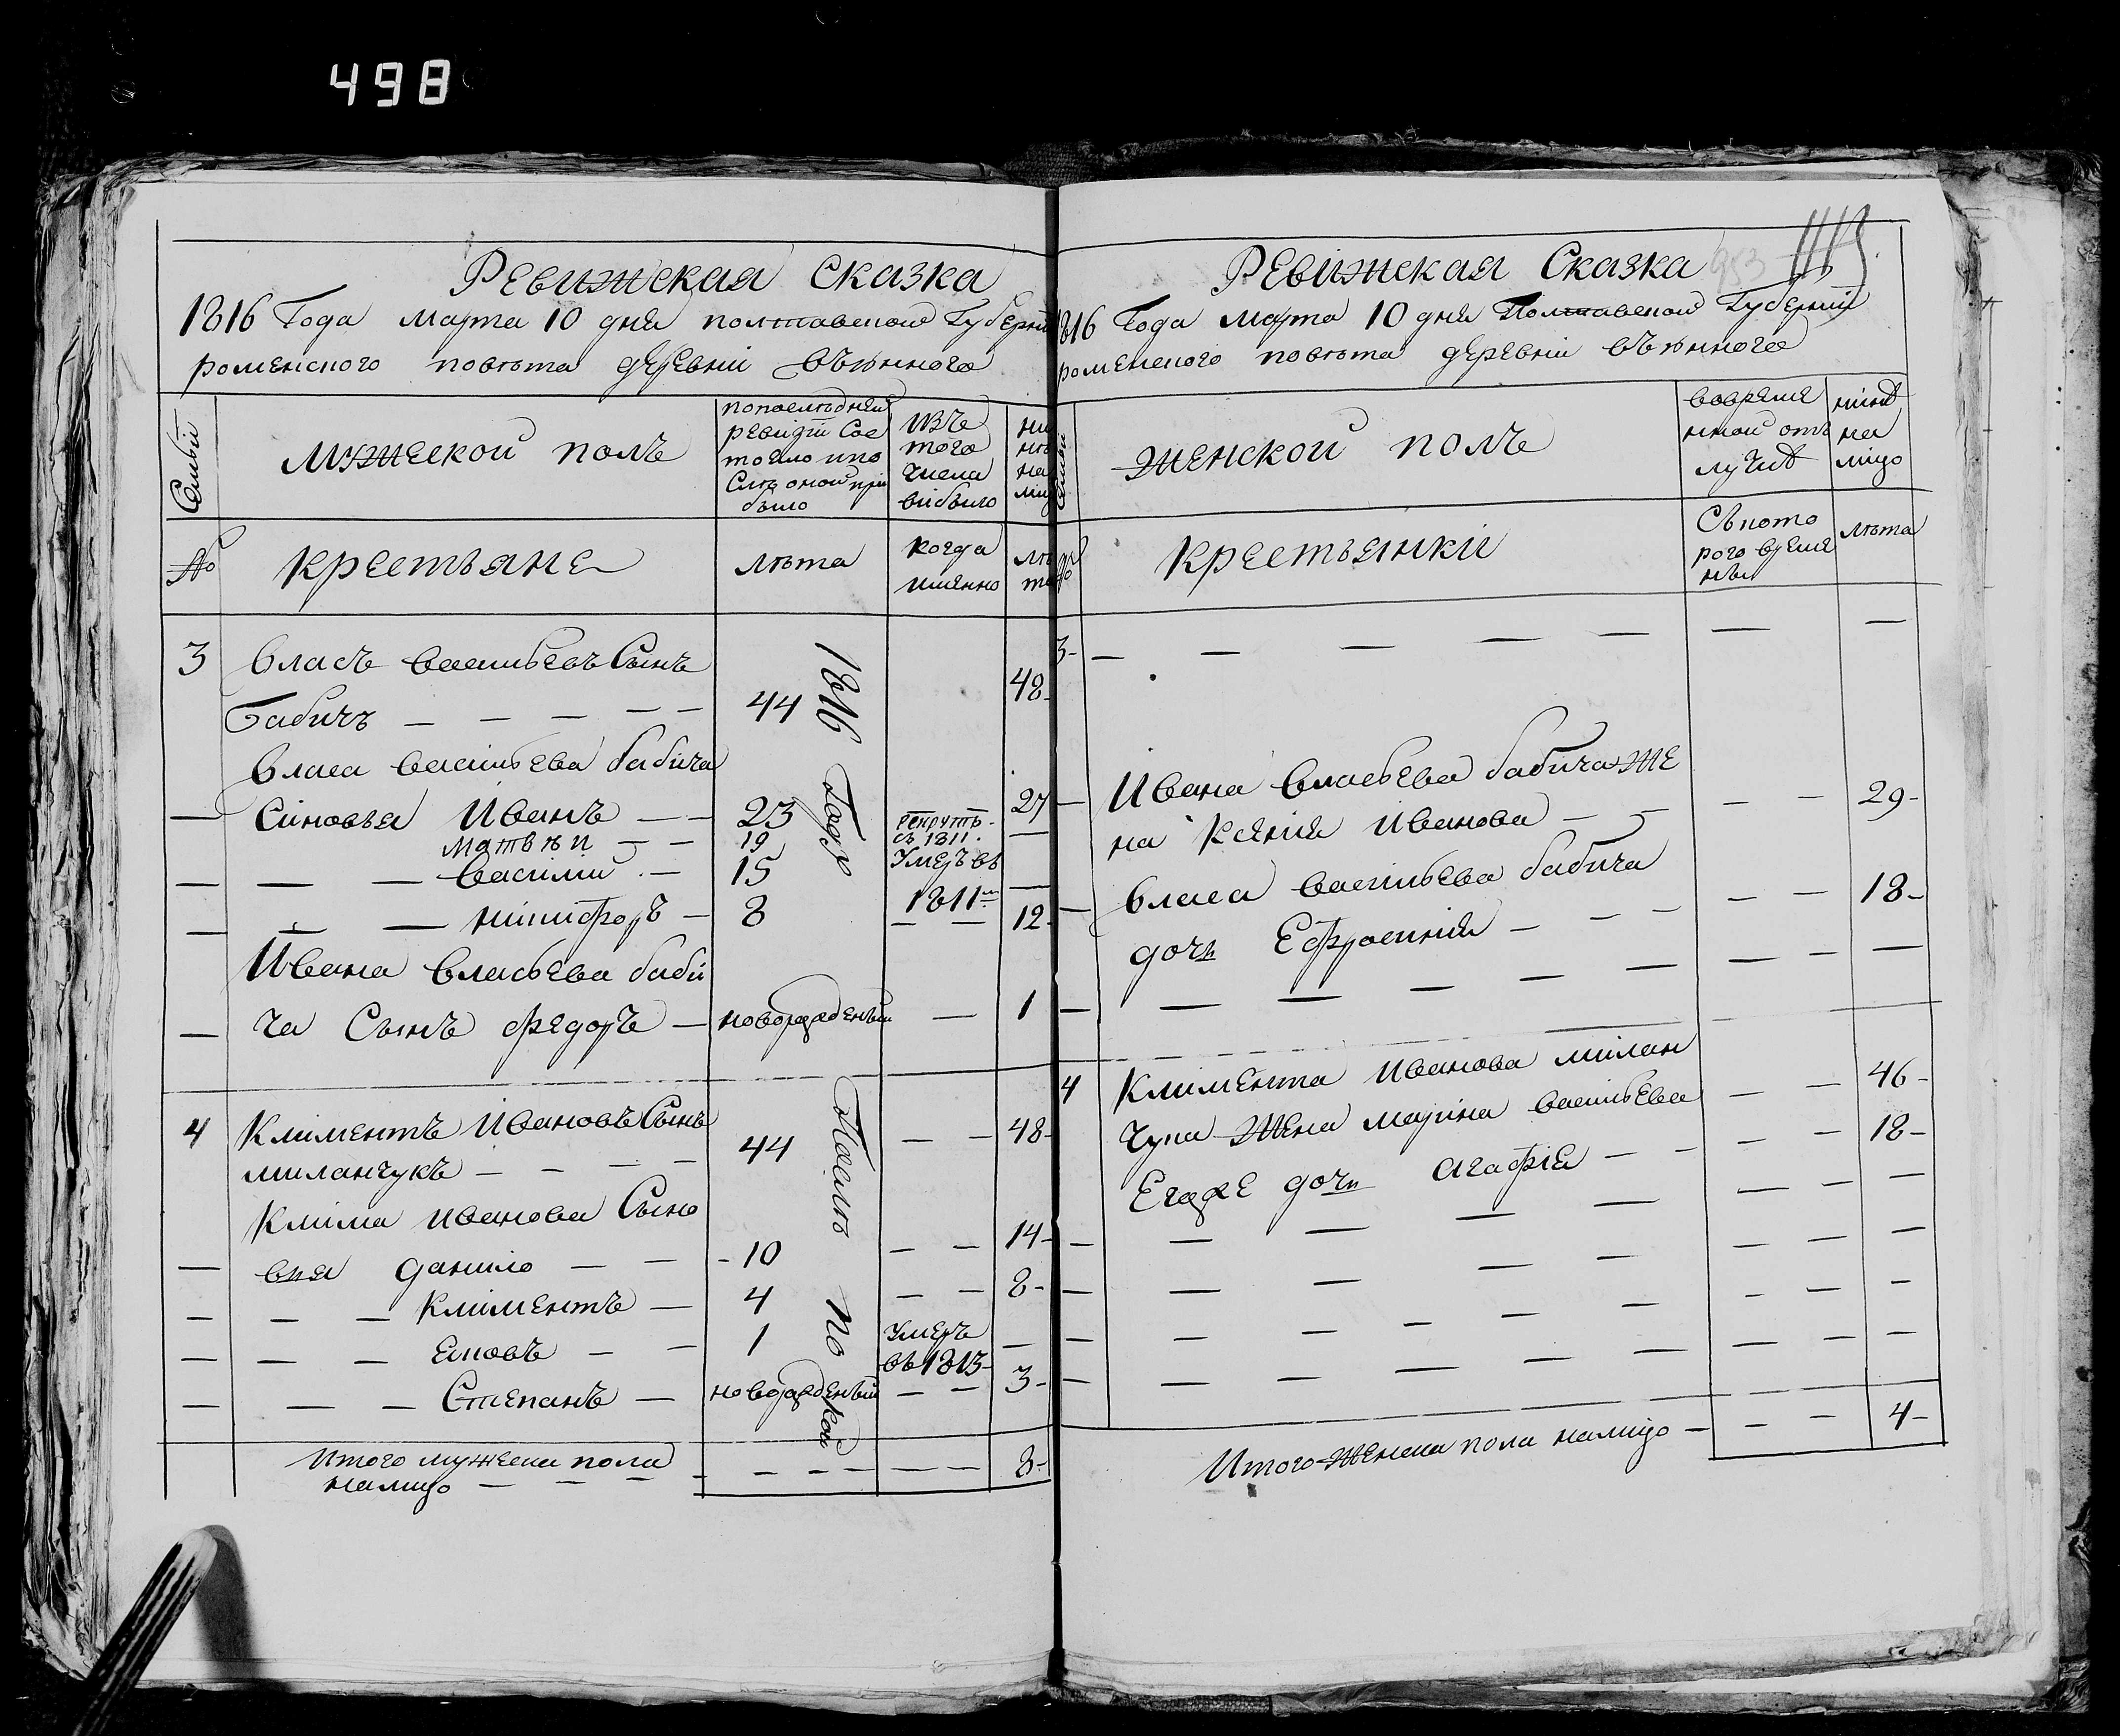 498
Ревижская Сказка
1816 Года марта 10 дня полтавской Губерніи
роменского повѣта деревни Вѣюнного
Семьи
мужеской полъ
попослѣдней
ревизіи Сос
тояло ипо
Слѣ оной при
было
Изъ
того
Числа
вибыло
ни
нѣ
на
лиц
№
крестьяне
лѣта
когда
именно
лѣ
та
3 Власъ Васильевъ Сынъ
Бабичъ — — — — — 44 48
Власа Васильева бабича
— Синовья Иванъ — — 23 27
матвѣи — — 19 рекрутъ съ 1811. —
— — — Василий — 15 Умеръ въ 1811м —
— — — никифоръ — 8 — — 12
Ивана Власьева баби
— ча Сынъ федоръ — новорожденый — 1
4 Климентъ Ивановъ Сынъ
миланчукъ — — — — 44 — — 48
Клима иванова Сыно
— вия данило — — 10 — — 14
— — — Климентъ — 4 — — 8
— — — Яковъ — — 1 Умеръ въ 1813 —
— — — Степанъ — новорожденый — — 3
1816 Года
Послѣ по
Итого мужеска пола
налицо — — — — — — — — 8
953
Ревижская Сказка
1816 Года марта 10 дня Полтавской Губерніи
роменского повѣта деревни Вѣюнного
Семьи
Женской полъ
вовреме
нной отъ
лучкѣ
нинѣ
на
лицо
№
крестьянки
Съкото
рого време
ны
лѣта
3 — — — — — — —
— Ивана Власьева бабича Же
на Ксения Иванова — — — — 29
— Власа Васильева бабича
дочь Ефросиния — — — — — 18
— — — — — — — —
4 Климента Иванова милан
чука Жена марина Васильева — — 46
Егоже дочь Агафія — — — — 18
— — — — — — — —
— — — — — — — —
— — — — — — — —
— — — — — — — —
Итого Женска пола налицо — — — 4